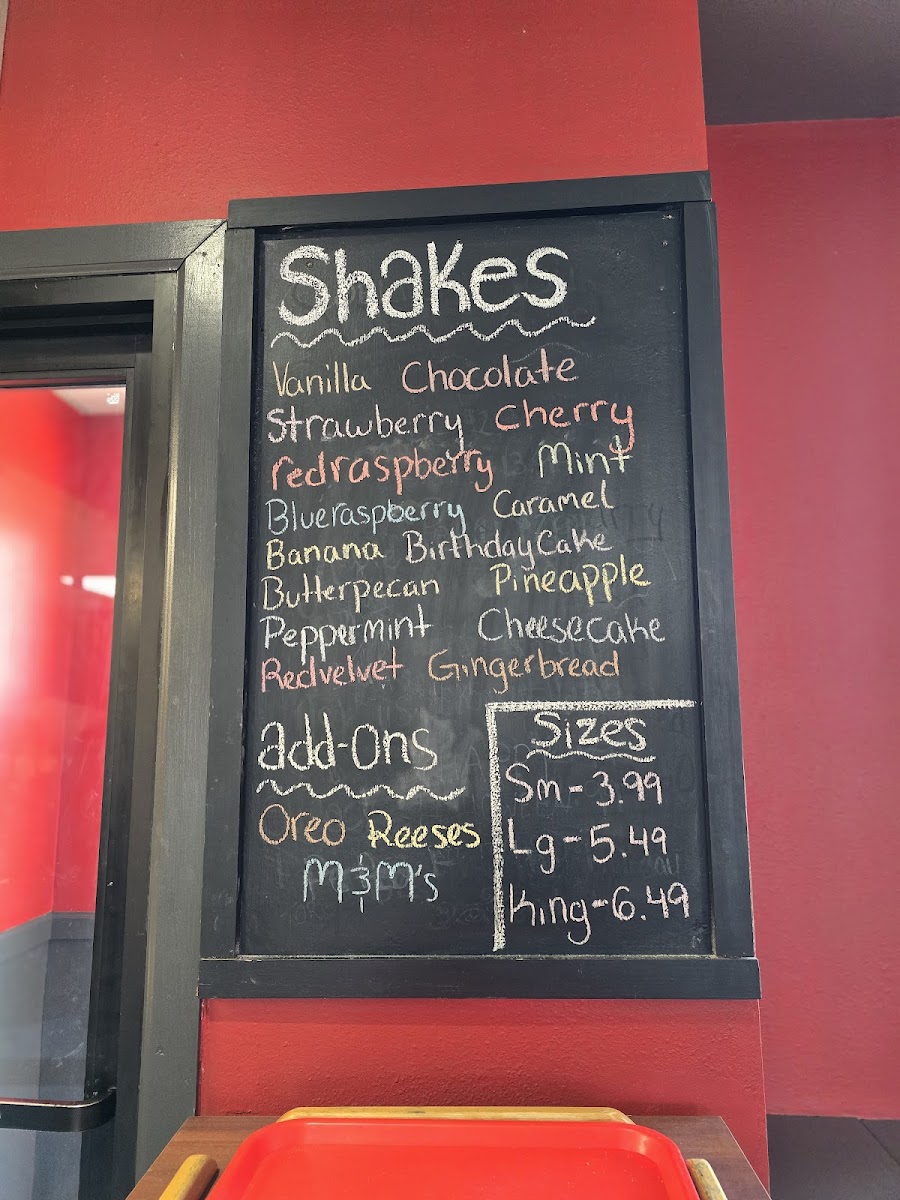 Shakes
Vanilla Chocolate
Strawberry Cherry
redraspberry Mint
Blueraspberry Caramel
Banana BirthdayCake
Butterpecan Pineapple
Peppermint Cheesecake
Redvelvet Gingerbread
add-ons
Oreo Reeses
M&M's
Sizes
Sm-3.99
Lg-5.49
King-6.49